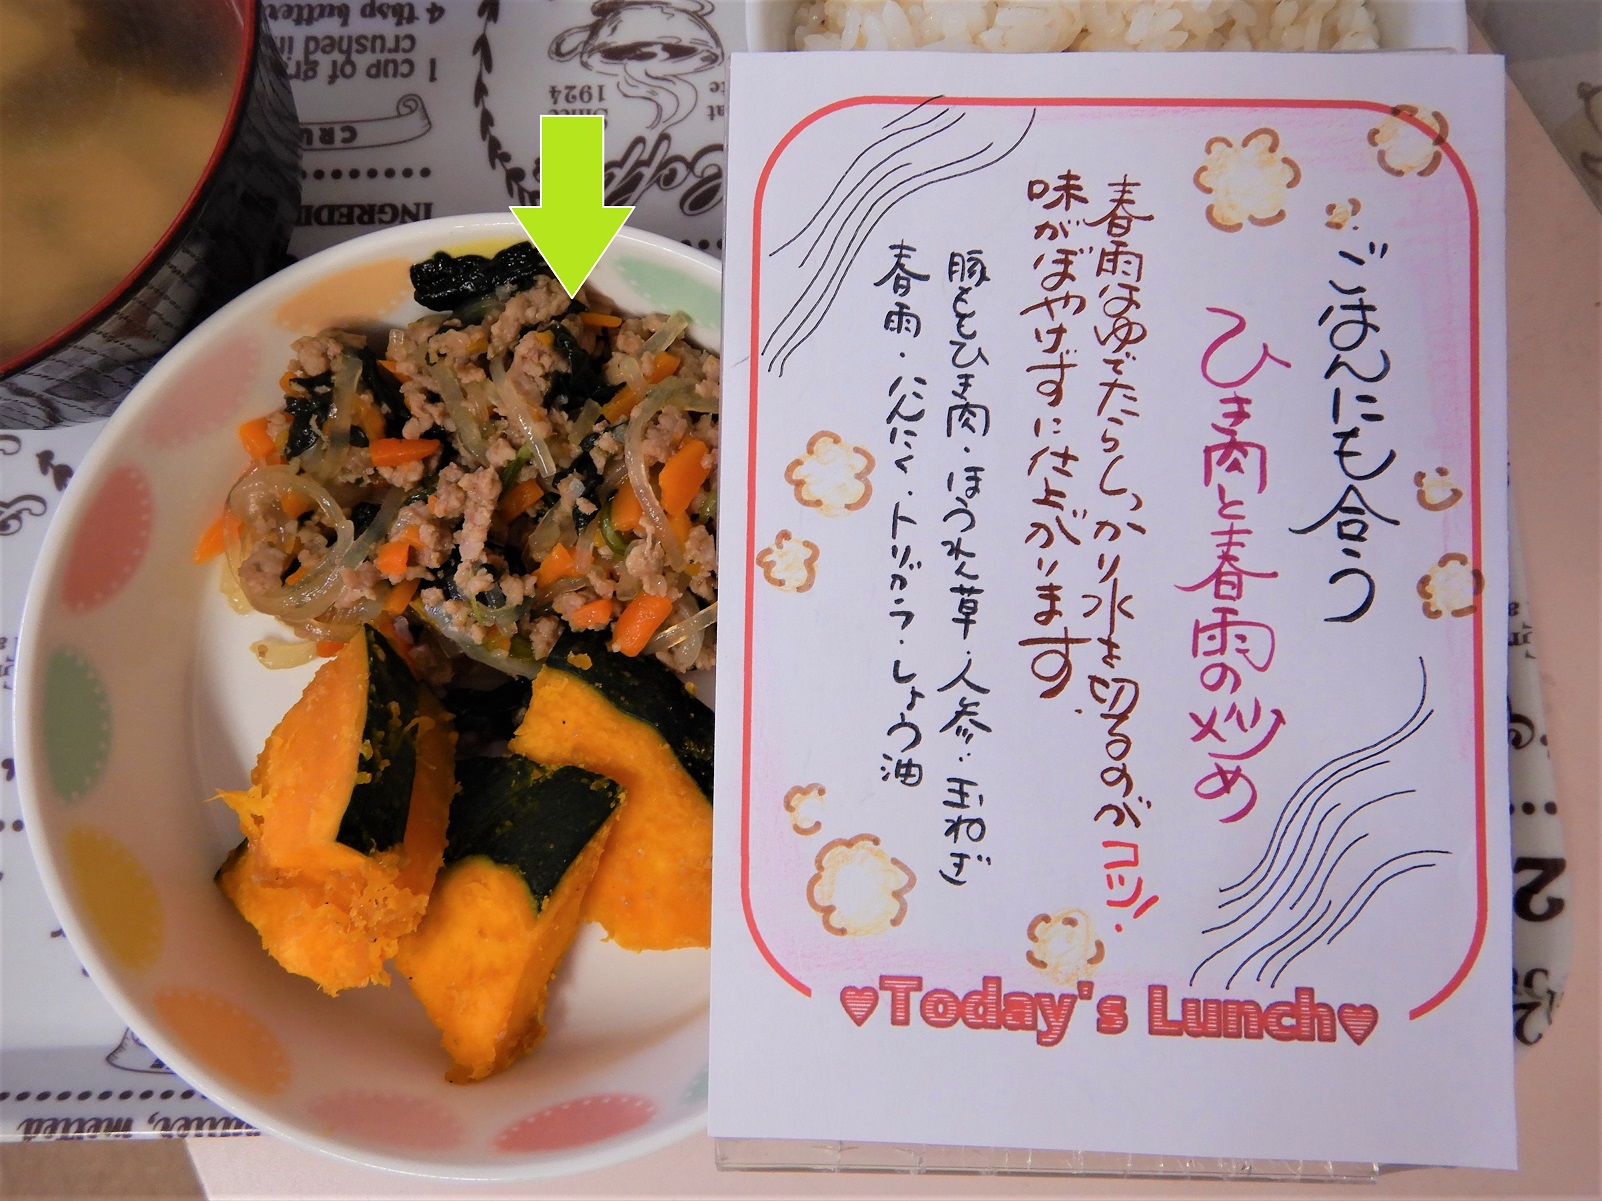 ごはんにも合う
ひき肉と春雨の炒め
春雨はゆでたらしっかり水を切るのがコツ!
味がぼやけずに仕上がります。
豚ととひき肉・ほうれん草・人参・玉ねぎ
春雨・にんにく・トリガラ・しょう油
♥Today's Lunch♥
4 tbsp butter
crushed in
1 cup of gr
CRU
INGREDI
Since
1924
Coff
melted